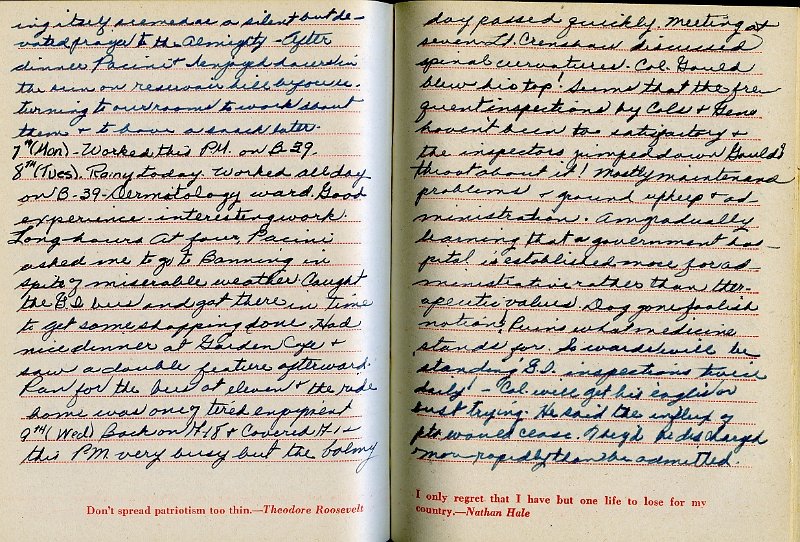 ing itself seemed as a silent but de-
voted prayer to the Almighty - After
dinner Pacini & I enjoyed hours in
the sun on reservoir hill before re-
turning to our rooms to work about
them & to have a snack later.
7th (Mon) - Worked this P.M. on B-39.
8TH (Tues). Rainy today. Worked all day
on B-39 - Dermatology ward. Good
experience - interesting work.
Long hours. At four, Pacini
asked me to go to Banning in
spite of miserable weather. Caught
the G.I. bus and got there in time
to get some shopping done. Had
nice dinner at Garden Cafe &
saw a double feature afterward.
Ran for the bus at eleven & the ride
home was one of tired enjoyment
9TH (Wed) Back on H18 & Covered H-1 &
this PM very busy but the balmy
Don't spread patriotism too thin.—Theodore Roosevelt
day passed quickly. Meeting at
seven. Lt. Crenshaw discussed
spinal curvatures. Col. Gould
blew his top! Seems that the fre-
quent inspections by Cols & Gens
haven't been too satisfactory &
the inspectors jumped down Gould's
throat about it! Mostly maintenance
problems & ground upkeep & ad
ministration. Am gradually
learning that a government hos-
pital is established more for ad
ministrative rather than ther-
apeutic values. Dog gone foolish
notion! Ruins what medicine
stands for. So wards will be
standing G.I. inspections twice
daily! - Col. will get his eagles or
bust trying. He said the influx of
pts would cease. They'd be discharged
more rapidly than be admitted.
I only regret that I have but one life to lose for my
country.—Nathan Hale